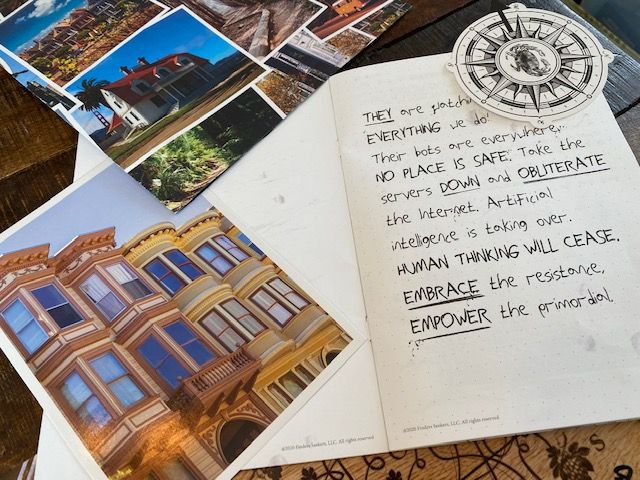 THEY are
EVERYTHING we do.
Their bots are everywhere.
NO PLACE IS SAFE. Take the
servers DOWN and OBLITERATE
the Internet. Artificial
intelligence is taking over.
HUMAN THINKING WILL CEASE.
EMBRACE the resistance,
EMPOWER the primordial.
©2020 Finders Seekers, LLC. All rights reserved.
©2020 Finders Seekers, LLC. All rights reserved.